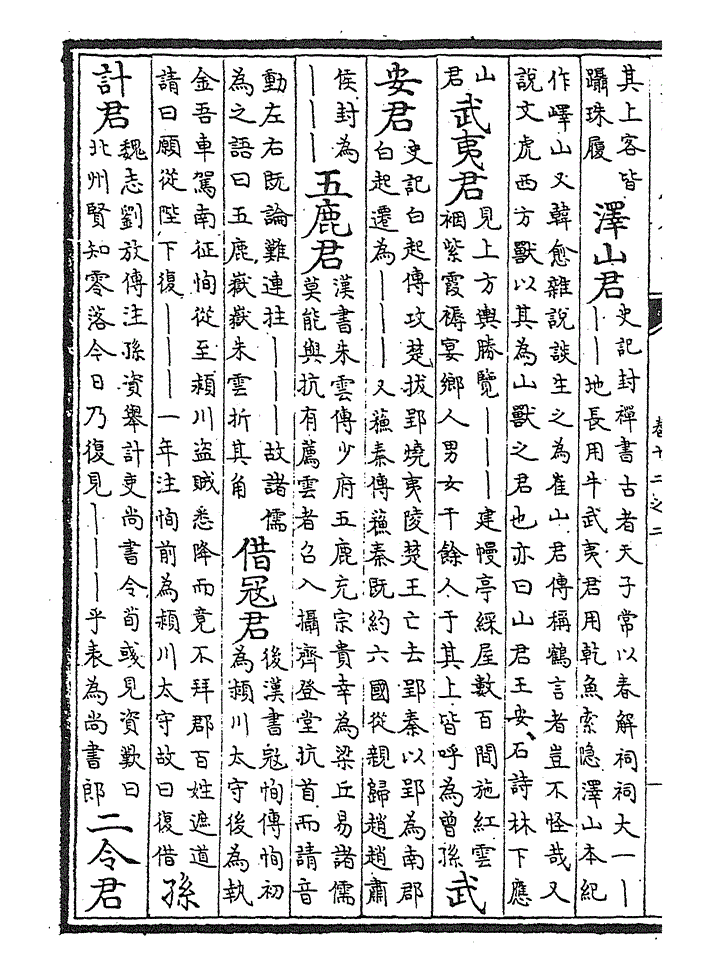 其上客皆
躡珠履
澤山君
史記封禪書古者天子常以春解祠祠大一丨
丨丨地長用牛武夷君用乾魚索隐澤山本紀
作嶧山又韓愈雜說談生之為崔山君傳稱鶴言者豈不怪哉又
說文虎西方獸以其為山獸之君也亦曰山君王安石詩林下應
山
君
武夷君
見上方輿勝覽丨丨丨建幔亭綵屋數百間施紅雲
裀紫霞褥宴鄉人男女千餘人于其上皆呼為曾孫
武
安君
史記白起傳攻楚拔郢燒夷陵楚王亡去郢秦以郢為南郡
白起遷為丨丨丨又蘓秦傳蘓秦既約六國從親歸趙趙肅
侯封為
丨丨丨
五鹿君
漢書朱雲傳少府五鹿充宗貴幸為梁丘易諸儒
莫能與抗有薦雲者召入攝齊登堂抗首而請音
動左右既論難連拄丨丨丨故諸儒
為之語曰五鹿嶽嶽朱雲折其角
借冦君
後漢書冦恂傳恂初
為頴川太守後為執
金吾車駕南征恂從至頴川盜賊悉降而竟不拜郡百姓遮道
請曰願從陛下復丨丨丨一年注恂前為頴川太守故曰復借
孫
計君
魏志劉放傳注孫資舉計吏尚書令荀彧見資歎曰
北州賢知零落今日乃復見丨丨丨乎表為尚書郎
二令君